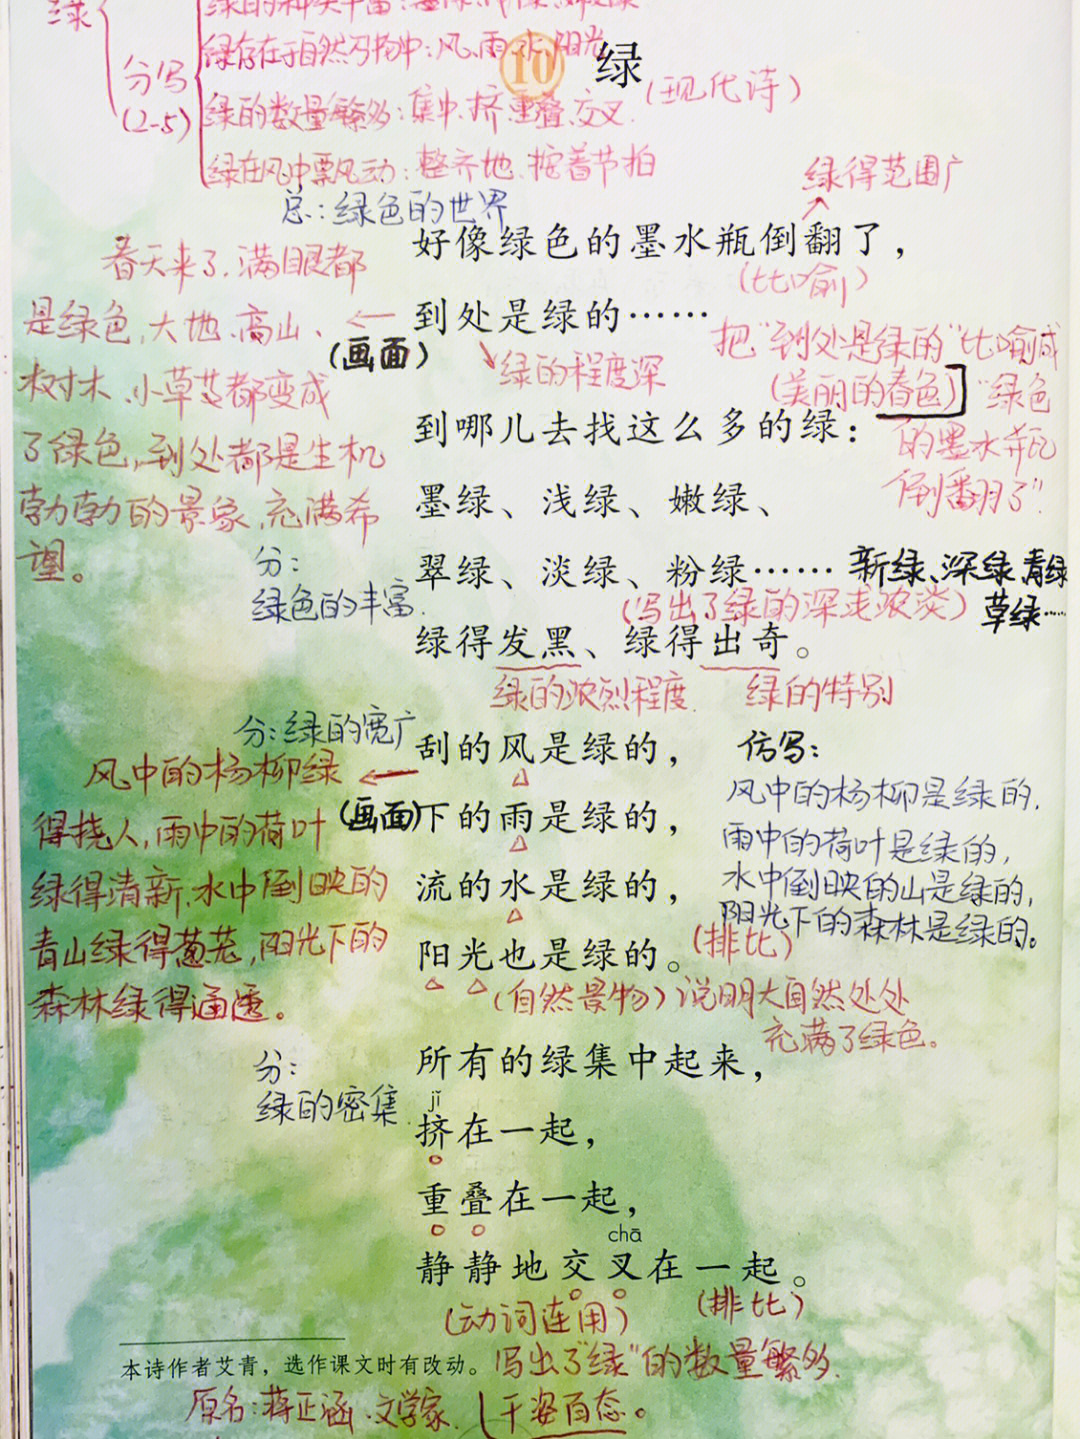 绿
绿的种类丰富:墨绿、浅绿、嫩绿
分写
(2-5)
绿存在于自然万物中:风、雨、水、阳光
绿的数量繁多:集中、挤、重叠、交叉.
绿在风中飘动:整齐地、按着节拍
10 绿
(现代诗)
总:绿色的世界
绿得范围广
好像绿色的墨水瓶倒翻了,
(比喻)
到处是绿的……
(画面)
春天来了,满眼都
是绿色,大地、高山、
树木、小草芽都变成
了绿色,到处都是生机
勃勃的景象,充满希
望。
绿的程度深
把“到处是绿的”比喻成
(美丽的春色)“绿色
的墨水瓶
倒翻了”
到哪儿去找这么多的绿:
墨绿、浅绿、嫩绿、
翠绿、淡绿、粉绿……
新绿、深绿、青绿
草绿……
分:
绿色的丰富.
(写出了绿的深浅浓淡)
绿得发黑、绿得出奇。
绿的浓烈程度.
绿的特别
分:绿的宽广
刮的风是绿的,
下的雨是绿的,
流的水是绿的,
阳光也是绿的。
(画面)
风中的杨柳绿
得挠人,雨中的荷叶
绿得清新.水中倒映的
青山绿得葱茏,阳光下的
森林绿得通透。
仿写:
风中的杨柳是绿的,
雨中的荷叶是绿的,
水中倒映的山是绿的,
阳光下的森林是绿的。
(排比)
(自然景物)说明大自然处处
充满了绿色。
分:
绿的密集.
所有的绿集中起来,
jǐ
挤在一起,
重叠在一起,
chā
静静地交叉在一起。
(动词连用)
(排比)
写出了“绿”的数量繁多.
千姿百态。
本诗作者艾青,选作课文时有改动。
原名:蒋正涵.文学家.